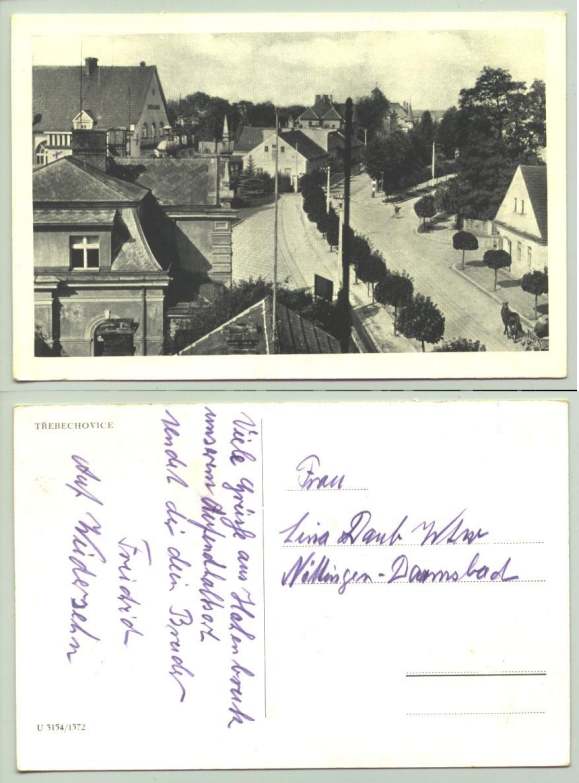 TŘEBECHOVICE
Viele Grüße aus Hohenbruck
unserem Aufendhaltsort
sendet dir dein Bruder
Friedrich
Auf Wiedersehn
U 5154/1572
Frau
Lina Daub Wtw
Nöttingen-Darmsbach